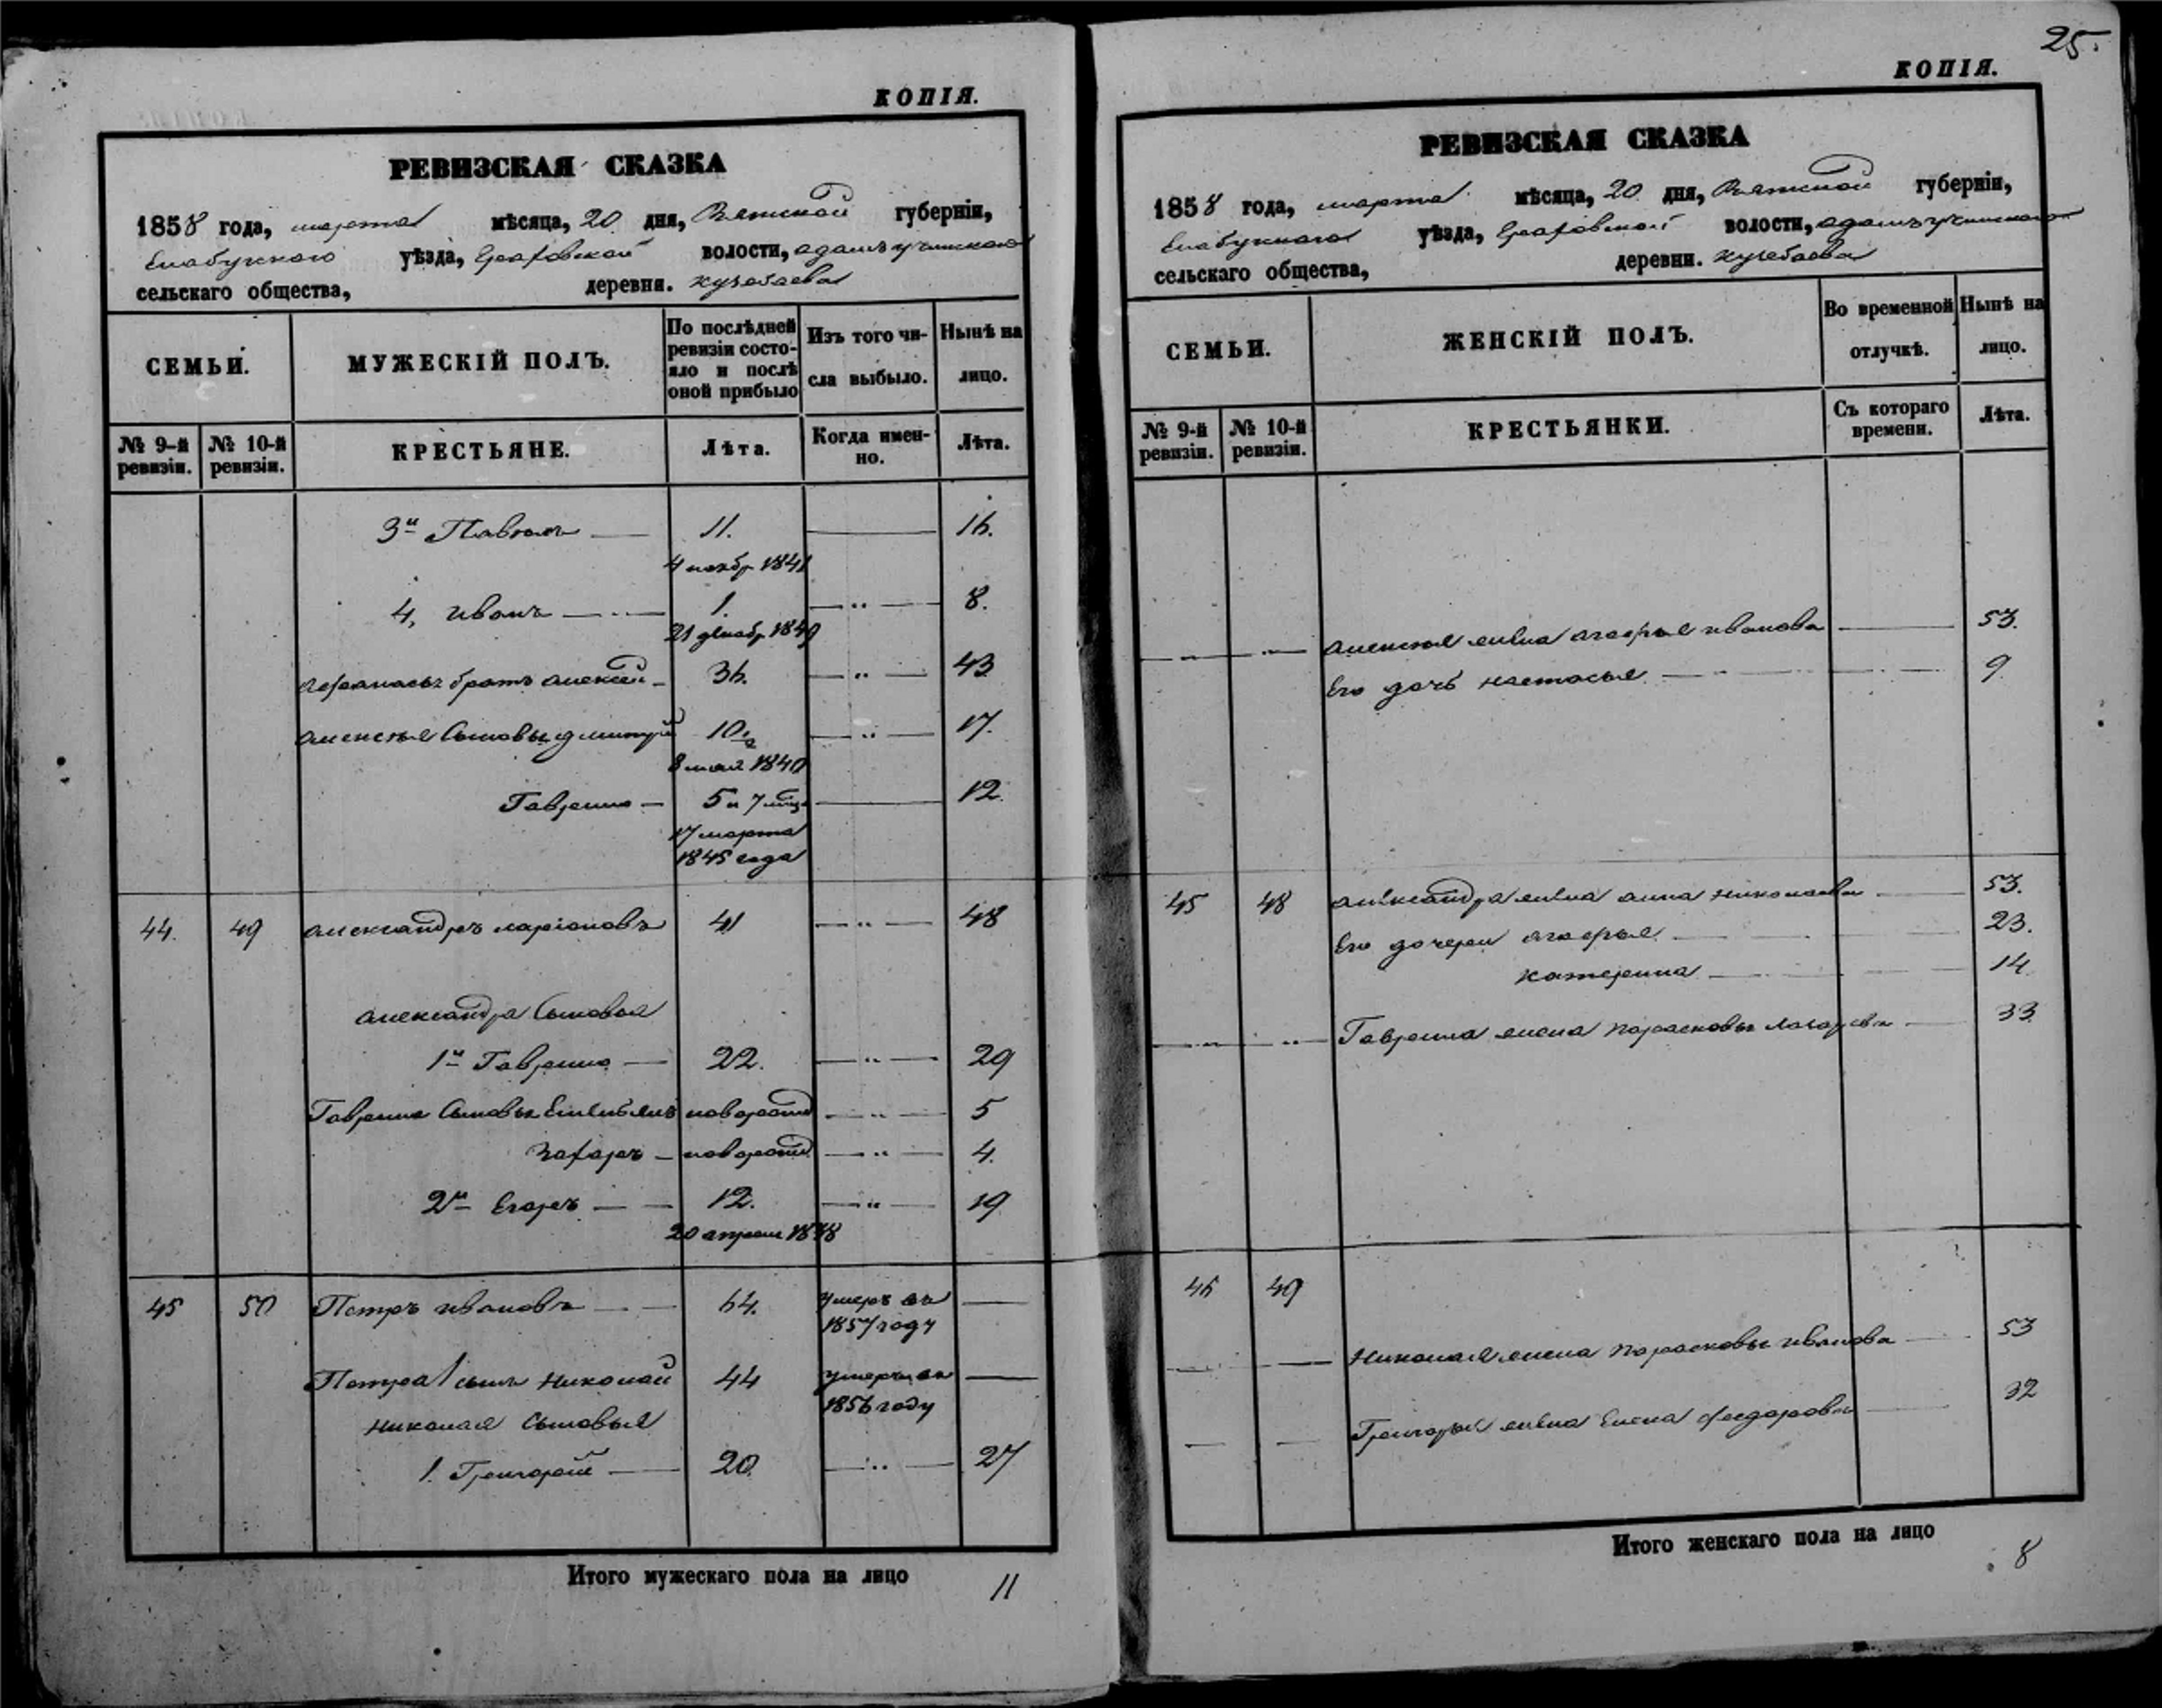 КОПІЯ.
РЕВИЗСКАЯ СКАЗКА
1858 года, марта мѣсяца, 20 дня, Вятской губерніи,
Елабужского уѣзда, Граховской волости, адамъучинского
сельскаго общества, деревни. кузебаева
СЕМЬИ.
МУЖЕСКІЙ ПОЛЪ.
По послѣдней ревизіи состояло и послѣ оной прибыло
Изъ того числа выбыло.
Нынѣ на лицо.
№ 9-й ревизіи.
№ 10-й ревизіи.
КРЕСТЬЯНЕ.
Лѣта.
Когда именно.
Лѣта.
3й Павелъ 11. 16.
4 1841
4, иванъ 1. 8.
21 декабр 1849
Афанасья братъ алексей 36. 43
алексея сыновья дмитрий 10 17.
8 мая 1840
Гаврило 5 и 7 12.
17 марта
1845 года
44. 49 александръ ларіоновъ 41 48
александра сыновья
1й Гаврило 22. 29
Гаврила сыновья Емельянъ новорожд 5
Захаръ новорожд 4.
2й Егоръ 12. 19
20 апреля 1838
45 50 Петръ ивановъ 64. умеръ въ
1857 году
Петра сынъ Николай 44 умеръ въ
1856 году
Николая сыновья
1. Григорей 20. 27
Итого мужескаго пола на лицо 11
25.
КОПІЯ.
РЕВИЗСКАЯ СКАЗКА
1858 года, марта мѣсяца, 20 дня, Вятской губерніи,
Елабужского уѣзда, Граховской волости, адамъучинского
сельскаго общества, деревни. кузебаева
СЕМЬИ.
ЖЕНСКІЙ ПОЛЪ.
Во временной отлучкѣ.
Нынѣ на лицо.
№ 9-й ревизіи.
№ 10-й ревизіи.
КРЕСТЬЯНКИ.
Съ котораго времени.
Лѣта.
алексея жена агафья иванова 53.
Его дочь настасья 9
45 48 александра жена анна николаева 53.
Его дочери агафья 23.
катерина 14
Гаврила жена парасковья лазарева 33
46 49
Николая жена парасковья иванова 53
Григорья жена Елена федорова 32
Итого женскаго пола на лицо 8